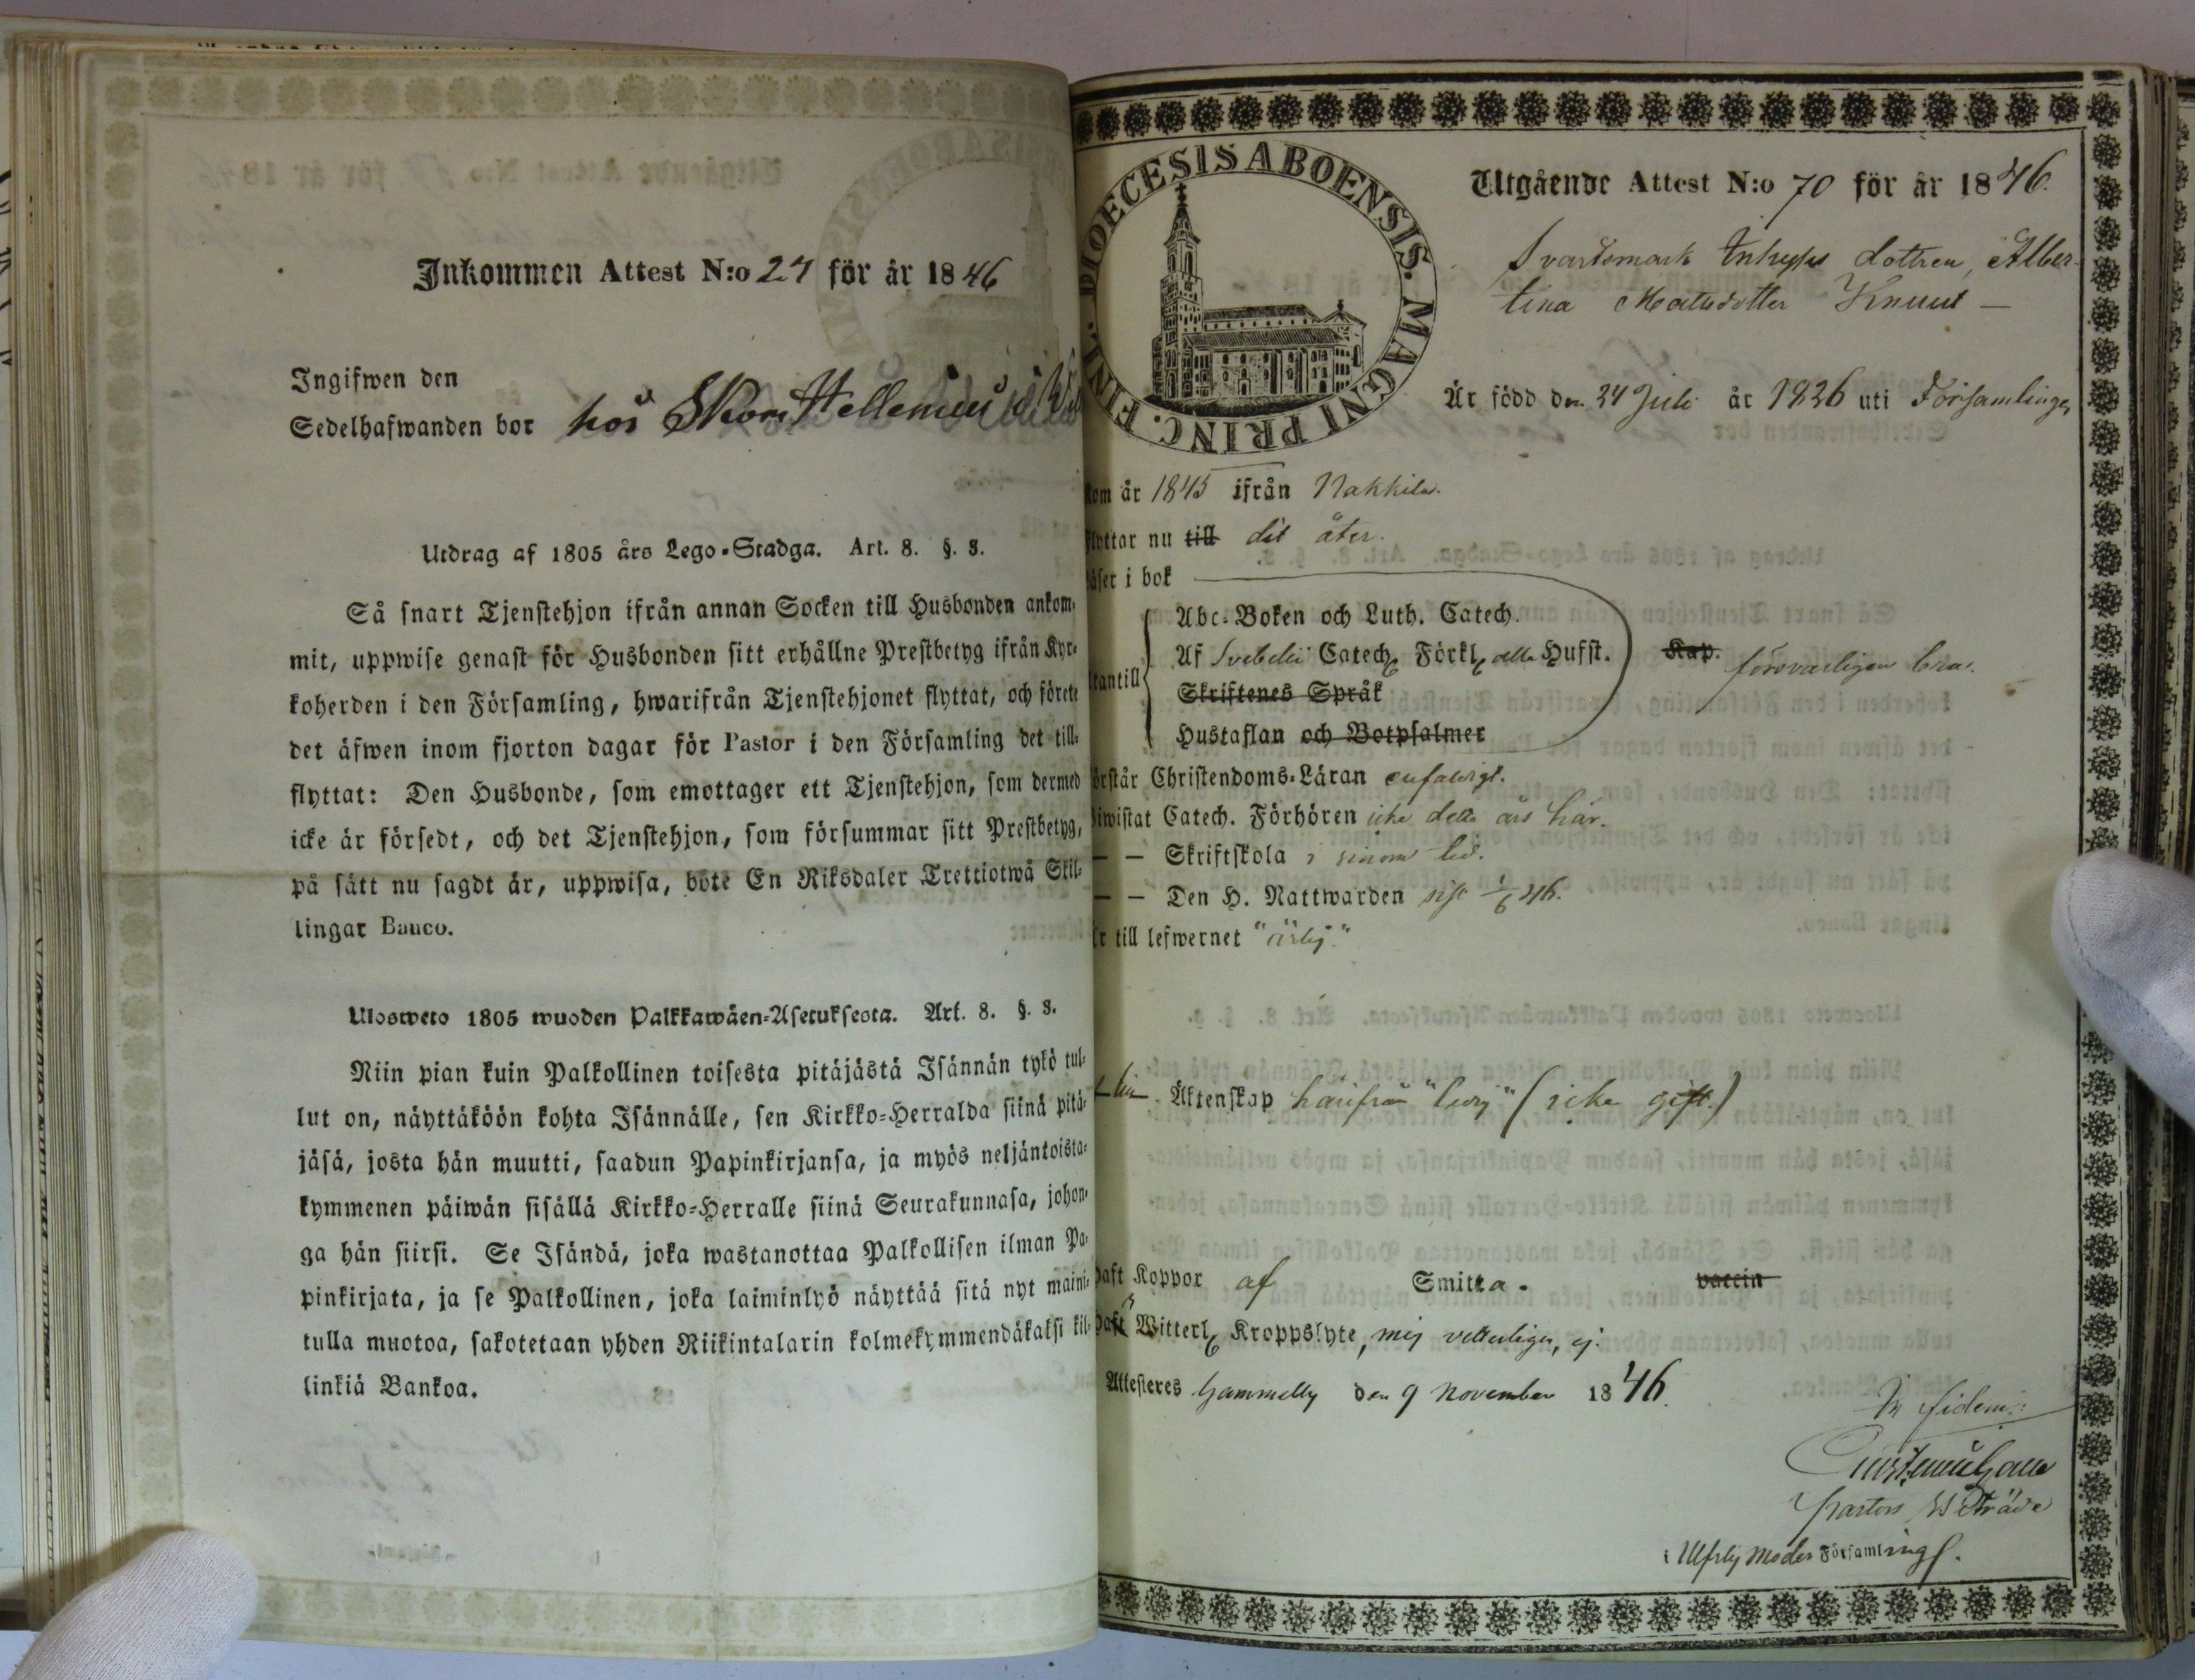 Inkommen Attest N:o 27 för år 1846
Ingifwen den
Sedelhafwanden bor hos
Utdrag af 1805 års Lego-Stadga. Art. 8. §. 3.
Så snart Tjenstehjon ifrån annan Socken till Husbonden ankom-
mit, uppwise genast för Husbonden sitt erhållne Prestbetyg ifrån Kyr-
koherden i den Församling, hwarifrån Tjenstehjonet flyttat, och förete
det äfwen inom fjorton dagar för Pastor i den Församling det till-
flyttat: Den Husbonde, som emottager ett Tjenstehjon, som dermed
icke är försedt, och det Tjenstehjon, som försummar sitt Prestbetyg,
på sätt nu sagdt är, uppwisa, böte En Riksdaler Trettiotwå Skil-
lingar Banco.
Ulosweto 1805 wuoden Palkkawäen-Asetuksesta. Art. 8. §. 3.
Niin pian kuin Palkollinen toisesta pitäjästä Isännän tykö tul-
lut on, näyttäköön kohta Isännälle, sen Kirkko-Herralda siinä pitä-
jäsä, josta hän muutti, saadun Papinkirjansa, ja myös neljäntoista-
kymmenen päiwän sisällä Kirkko-Herralle siinä Seurakunnasa, johon-
ga hän siirsi. Se Isändä, joka wastanottaa Palkollisen ilman Pa-
pinkirjata, ja se Palkollinen, joka laiminlyö näyttää sitä nyt maini-
tulla muotoa, sakotetaan yhden Riikintalarin kolmekymmendäkaksi kil-
linkiä Bankoa.
DIOECESIS ABOENSIS. MAGNI PRINC. FINL.
Utgående Attest N:o 70 för år 1846.
Svartsmark Inhyses dottren, Alber-
tina Matsdotter Knuut
Är född den 24 Juli år 1826 uti Församlingen
kom år 1845 ifrån Nakkila.
flyttar nu till dit åter.
läser i bok
Abc-Boken och Luth. Catech.
Af Svebelii Catech. Förkl. Hufst. Kap. försvarligen bra.
utantill
Skriftenes Språk
Hustaflan och Botpsalmer
förstår Christendoms-Läran enfaldigt.
biwistat Catech. Förhören icke detta års här.
— — Skriftskola i sinom tid.
— — Den H. Nattwarden sist 1/6 46.
Är till lefwernet "ärlig."
Äktenskap härifrån "ledig" (icke gift.)
haft Koppor af Smitta. vaccin
haft Witterl. Kroppslyte, mig vetterligen, ej.
Attesteres Gammelby den 9 November 1846.
In fidem:
Pastors
i Ulfsby Moder Församling